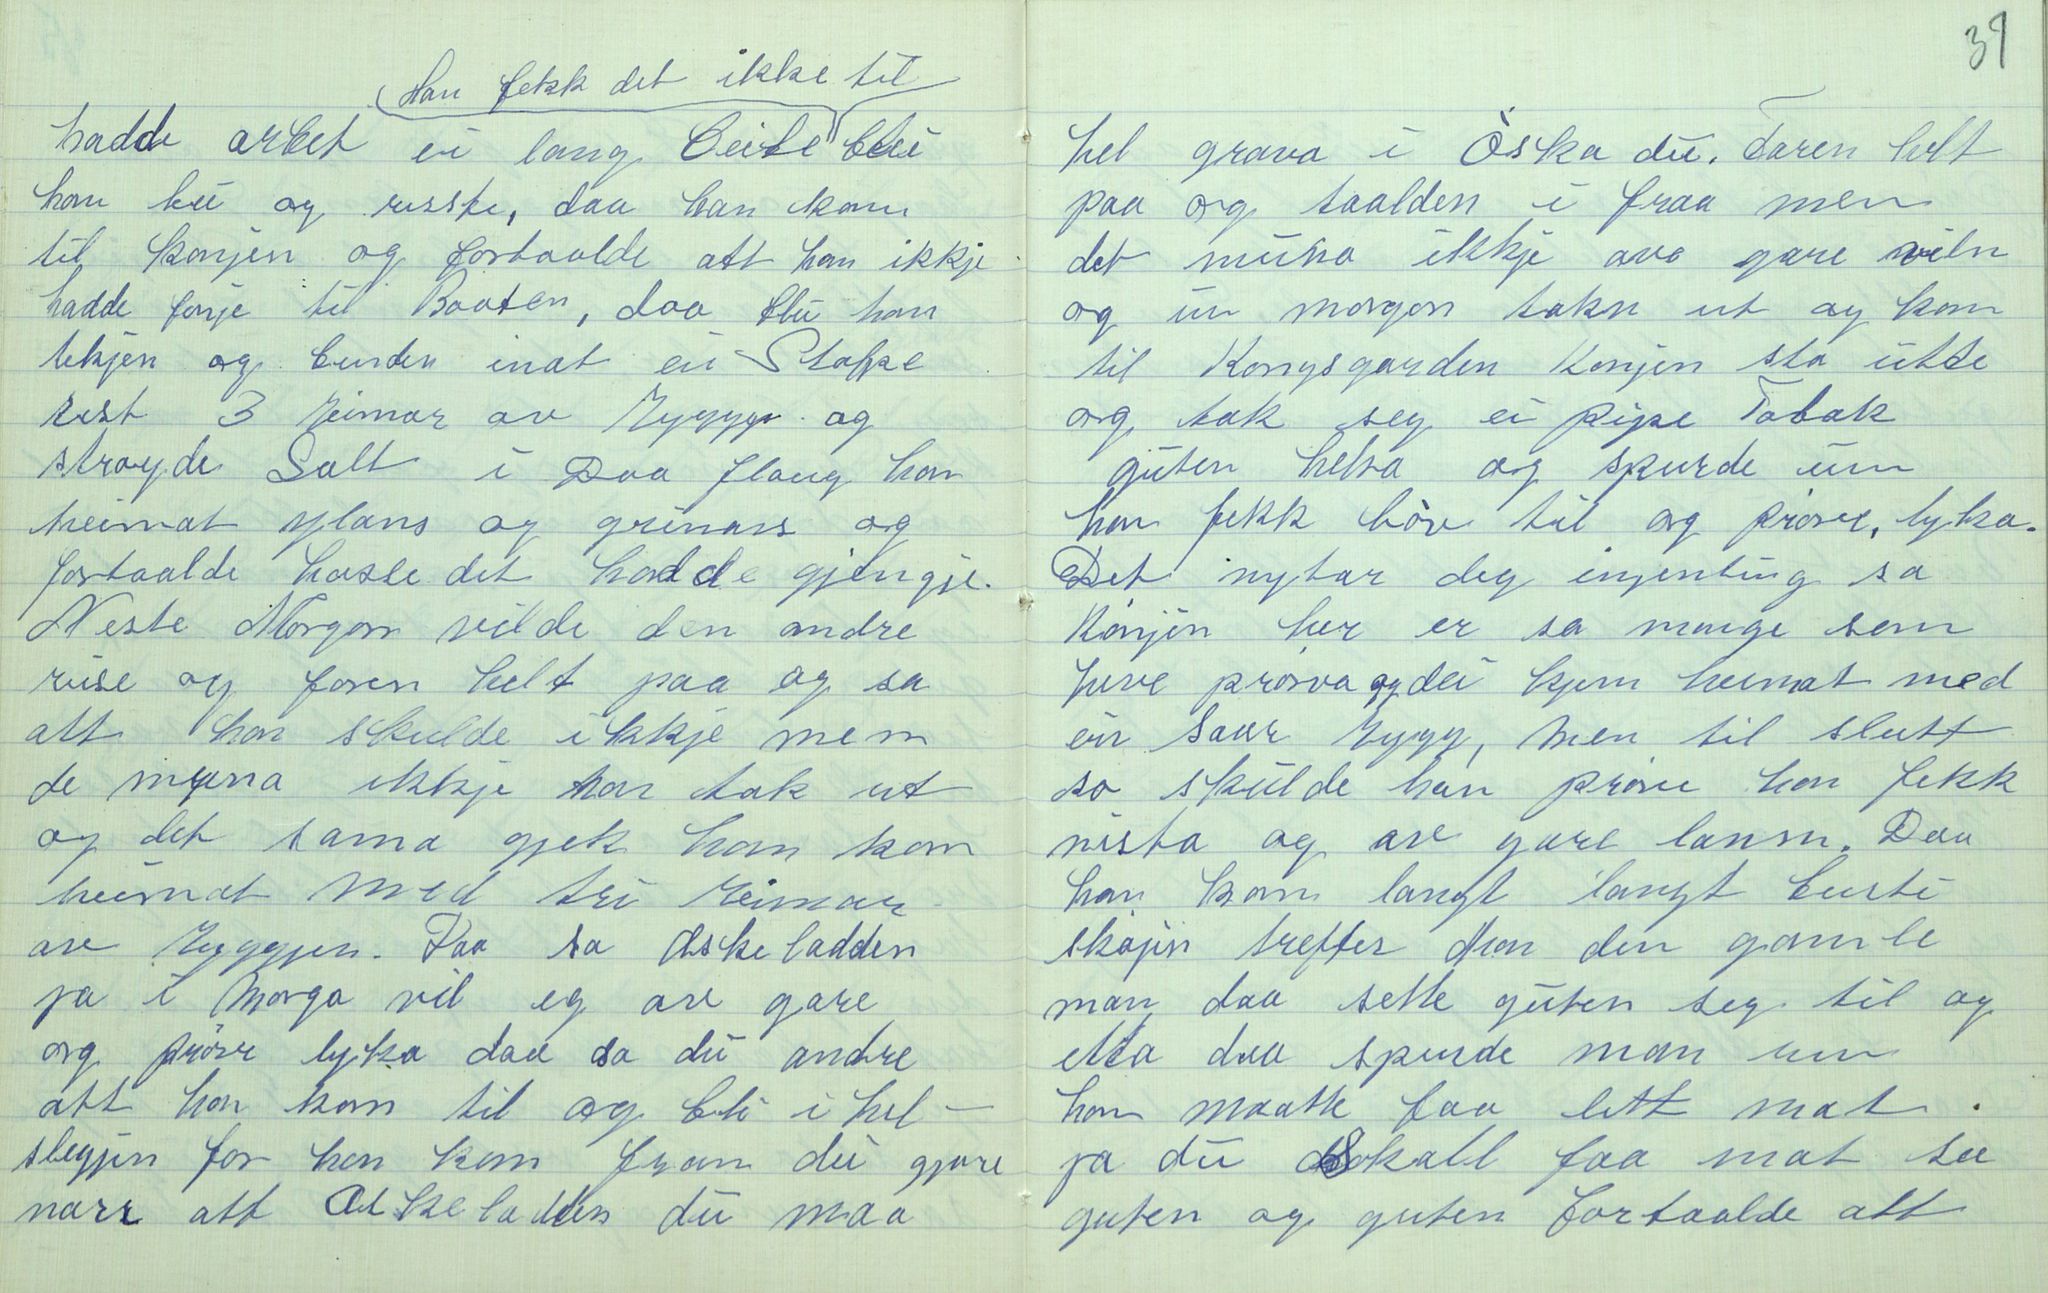 39
Han fekk det ikke til
hadde arbet ei lang Beite blei
han lei og reiste, daa han kom
til konjen og fortaalde att han ikkje
hadde fenje til Baaten, daa blei han
tekjen og bunden inat ein Stokke
rest 3 Reimar av Ryggje og
strøyde Salt i Daa flaug han
heimat og grinars og
fortaalde hosse det hadde gjengje.
Neste Morgon vilde den andre
reise og faren helt paa og sa
att han skulde ikkje men
de muna ikkje han tok ut
og det sama gjek han kom
heimat med tri Reimar
av Ryggjen. Daa sa Askeladden
ja i morga vil eg av gare
og prøve lyka daa sa dei andre
att han kom til og bli i hel-
slegjen for han kom fram dei gjore
narr att Askeladden du maa
hel grava i Öska du. Faren helt
paa og taalden i fraa men
det muna ikkje ava gare viln
og ein morgon tokn ut og kom
til Kongsgarden Konjen sto utte
og tok seg ei pipe Tobak
guten helsa og spurde um
han fekk löv til og prøve, lyka.
Det nytar deg injenting sa
Konjen her er so mange som
heve prøva og dei kjem heimat med
ein saar Rygg, men til slutt
so skulde han prøve han fekk
nista og av gare lansn. Daa
han kom langt langt burti
skojin treffer han den gamle
man daa sette guten seg til og
etta daa spurde man um
han maatte faa litt mat.
ja du Skall faa mat sa
guten og guten fortaalde att